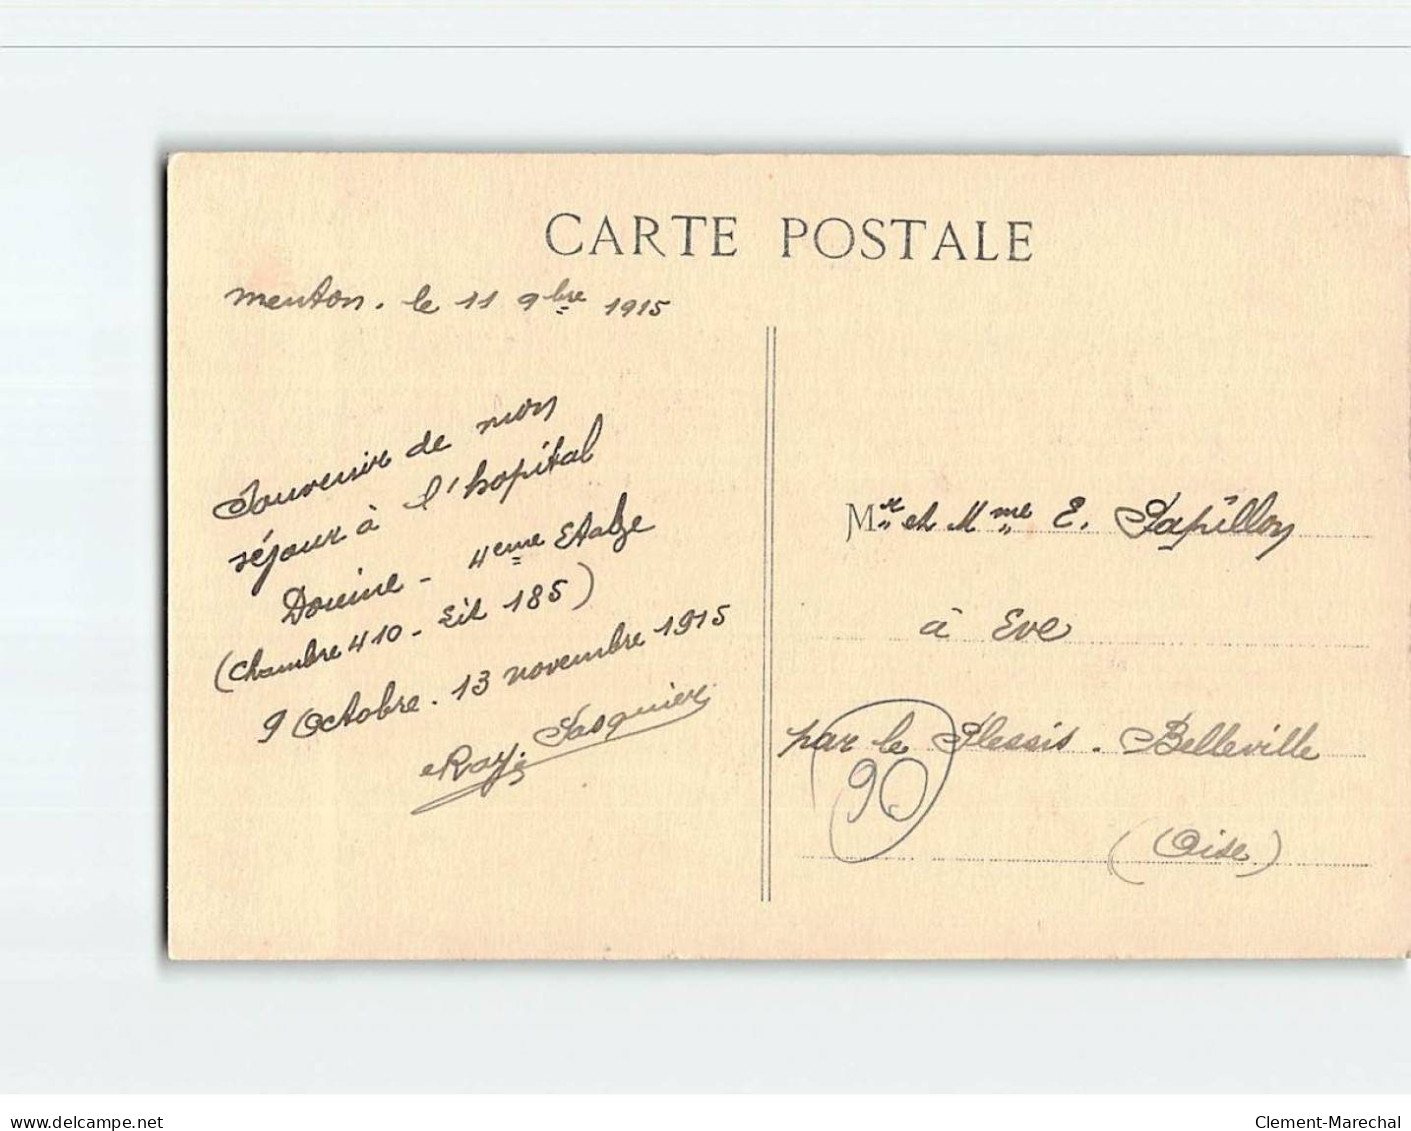 CARTE POSTALE
Menton. le 11 9bre 1915
Souvenir de mon
séjour à l'hopital
- 4eme Etage
(Chambre 410 - Lit 185)
9 Octobre. 13 novembre 1915
Pasquier
Mr et Mme E. Papillon
à Eve
par le Plessis. Belleville
90
(Oise)
www.delcampe.net
Clement-Marechal